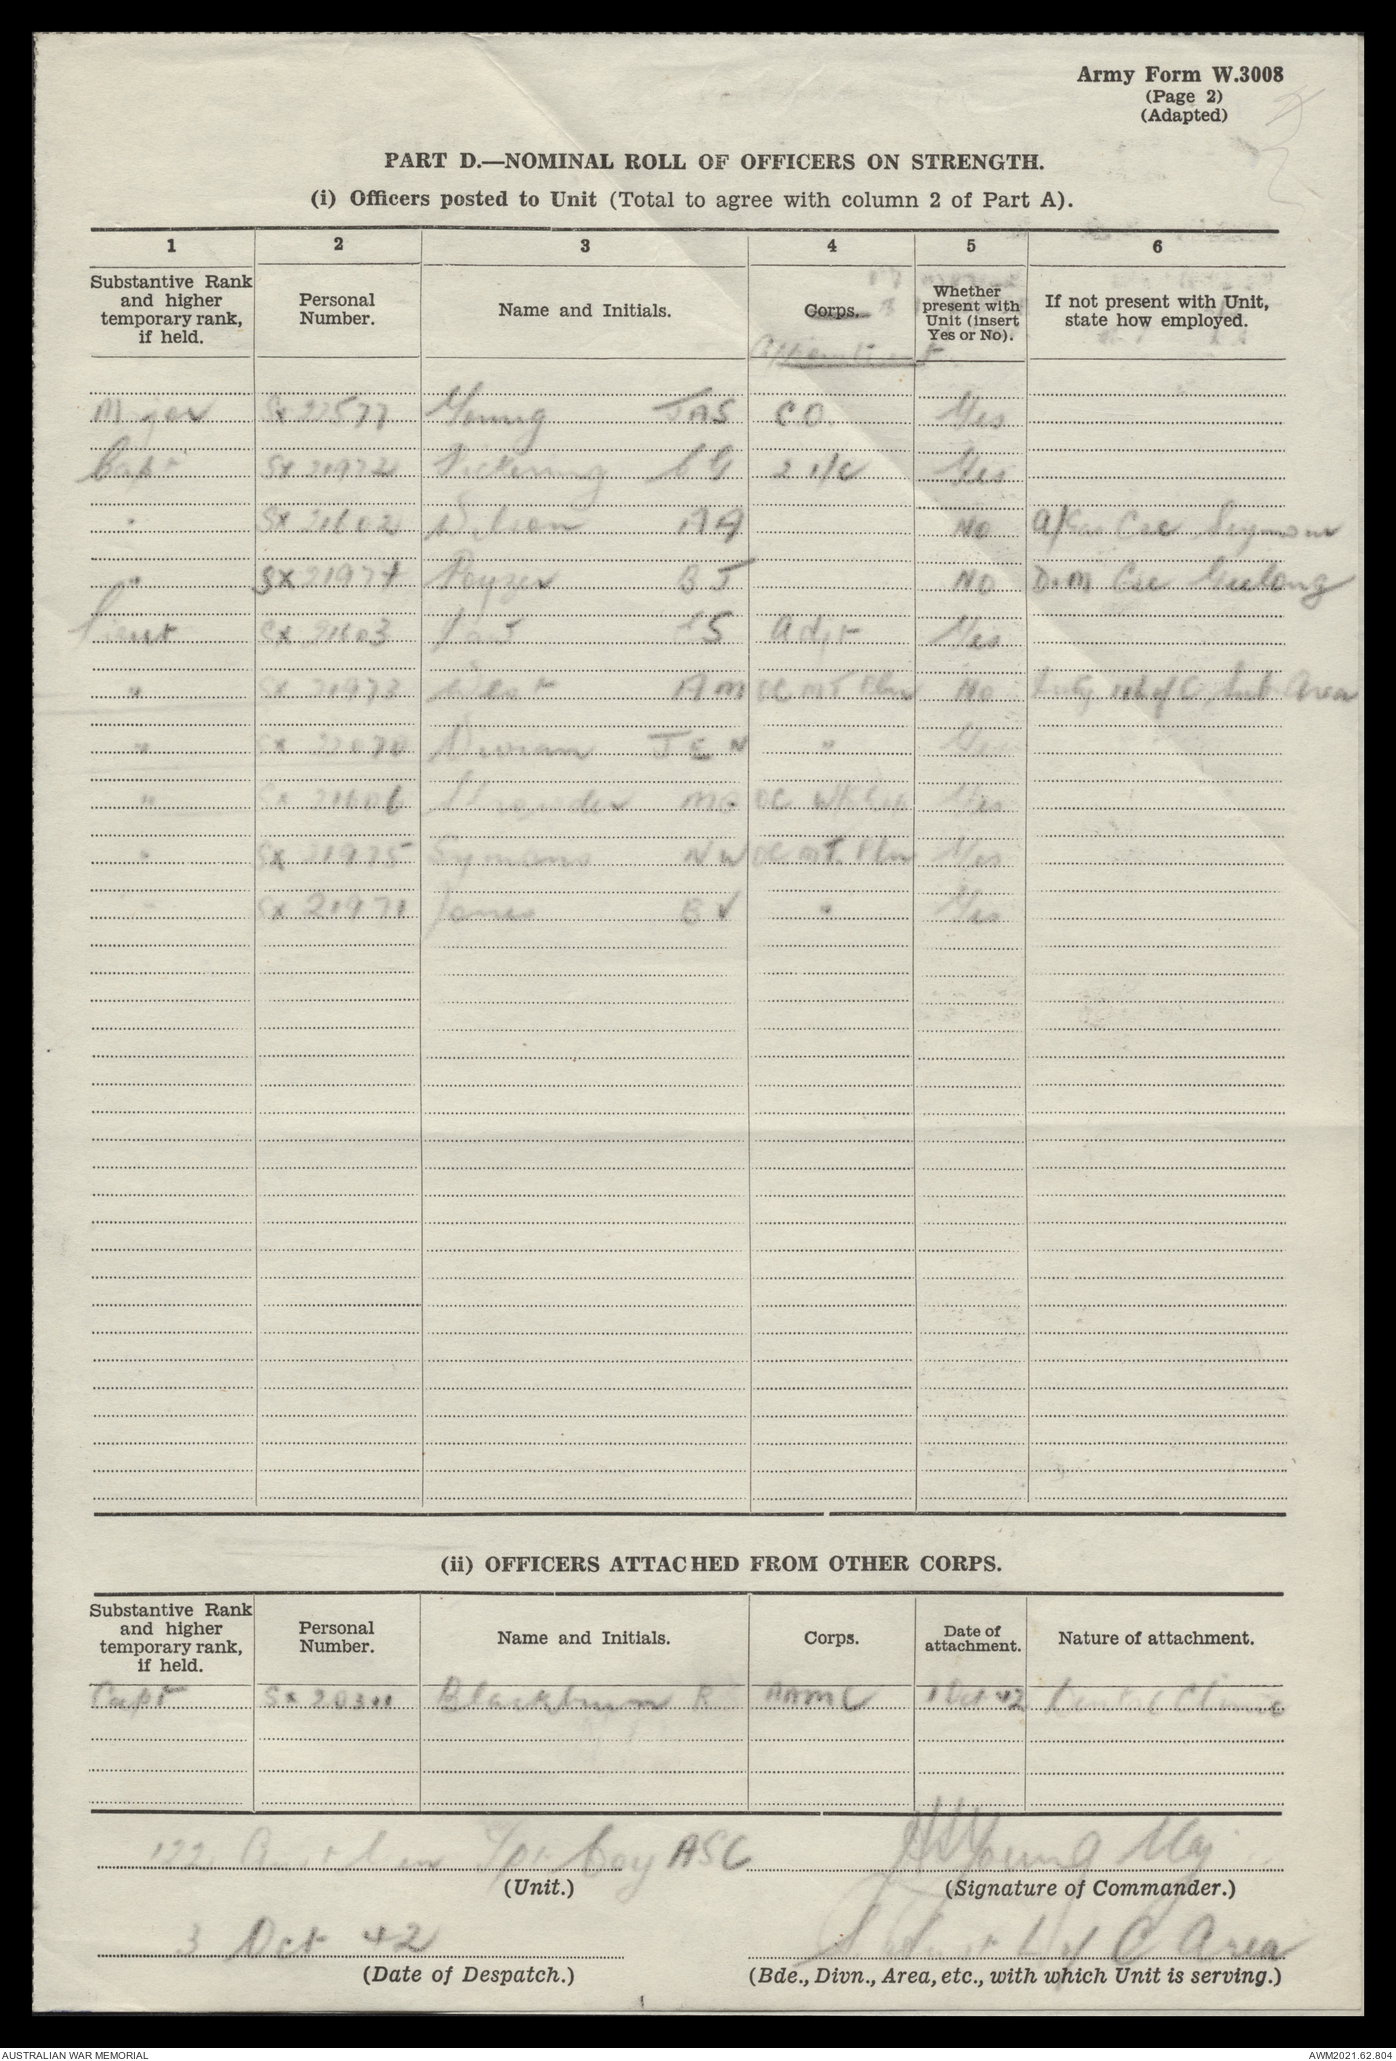 Army Form W.3008
(Page 2)
(Adapted)
PART D.—NOMINAL ROLL OF OFFICERS ON STRENGTH.
(i) Officers posted to Unit (Total to agree with column 2 of Part A).
1 2 3 4 5 6
Substantive Rank and higher temporary rank, if held.
Personal Number.
Name and Initials.
Corps.
Appointment
Whether present with Unit (insert Yes or No).
If not present with Unit, state how employed.
Major SX 22577 Young JAS CO. Yes
Capt SX 21972 Pickering CG 2 i/c Yes
" SX 21602 AA No Seymour
" SX 21974 Poyser BJ No D.M Cse Geelong
Lieut SX 21603 Adjt Yes
" SX 21973 AM OC MT Pln No L of C Sub Area
" SX 22070 JEN " Yes
" SX 21606 OC Wkshp Yes
" SX 21975 Symons NW OC MT. Pln Yes
" SX 21971 Jones BV " Yes
(ii) OFFICERS ATTACHED FROM OTHER CORPS.
Substantive Rank and higher temporary rank, if held.
Personal Number.
Name and Initials.
Corps.
Date of attachment.
Nature of attachment.
Capt SX 20311 Blackburn R AAMC 1 Oct 42 Dental Clinic
122 Aust Gen Tpt Coy ASC
(Unit.)
Young Maj
(Signature of Commander.)
3 Oct 42
(Date of Despatch.)
L of C Area
(Bde., Divn., Area, etc., with which Unit is serving.)
AUSTRALIAN WAR MEMORIAL AWM2021.62.804